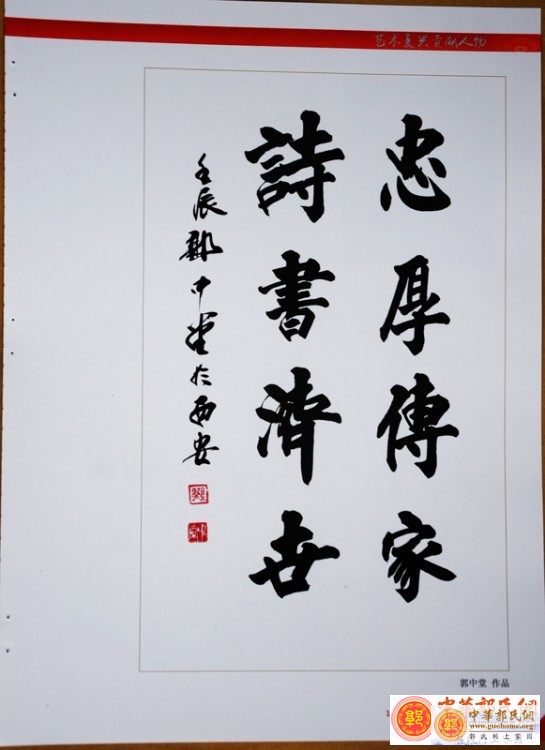 艺术复兴贡献人物
忠厚傳家
詩書濟世
壬辰郭中堂於西安
郭中堂 作品
中華郭氏網
www.guohome.org
郭氏网上家园